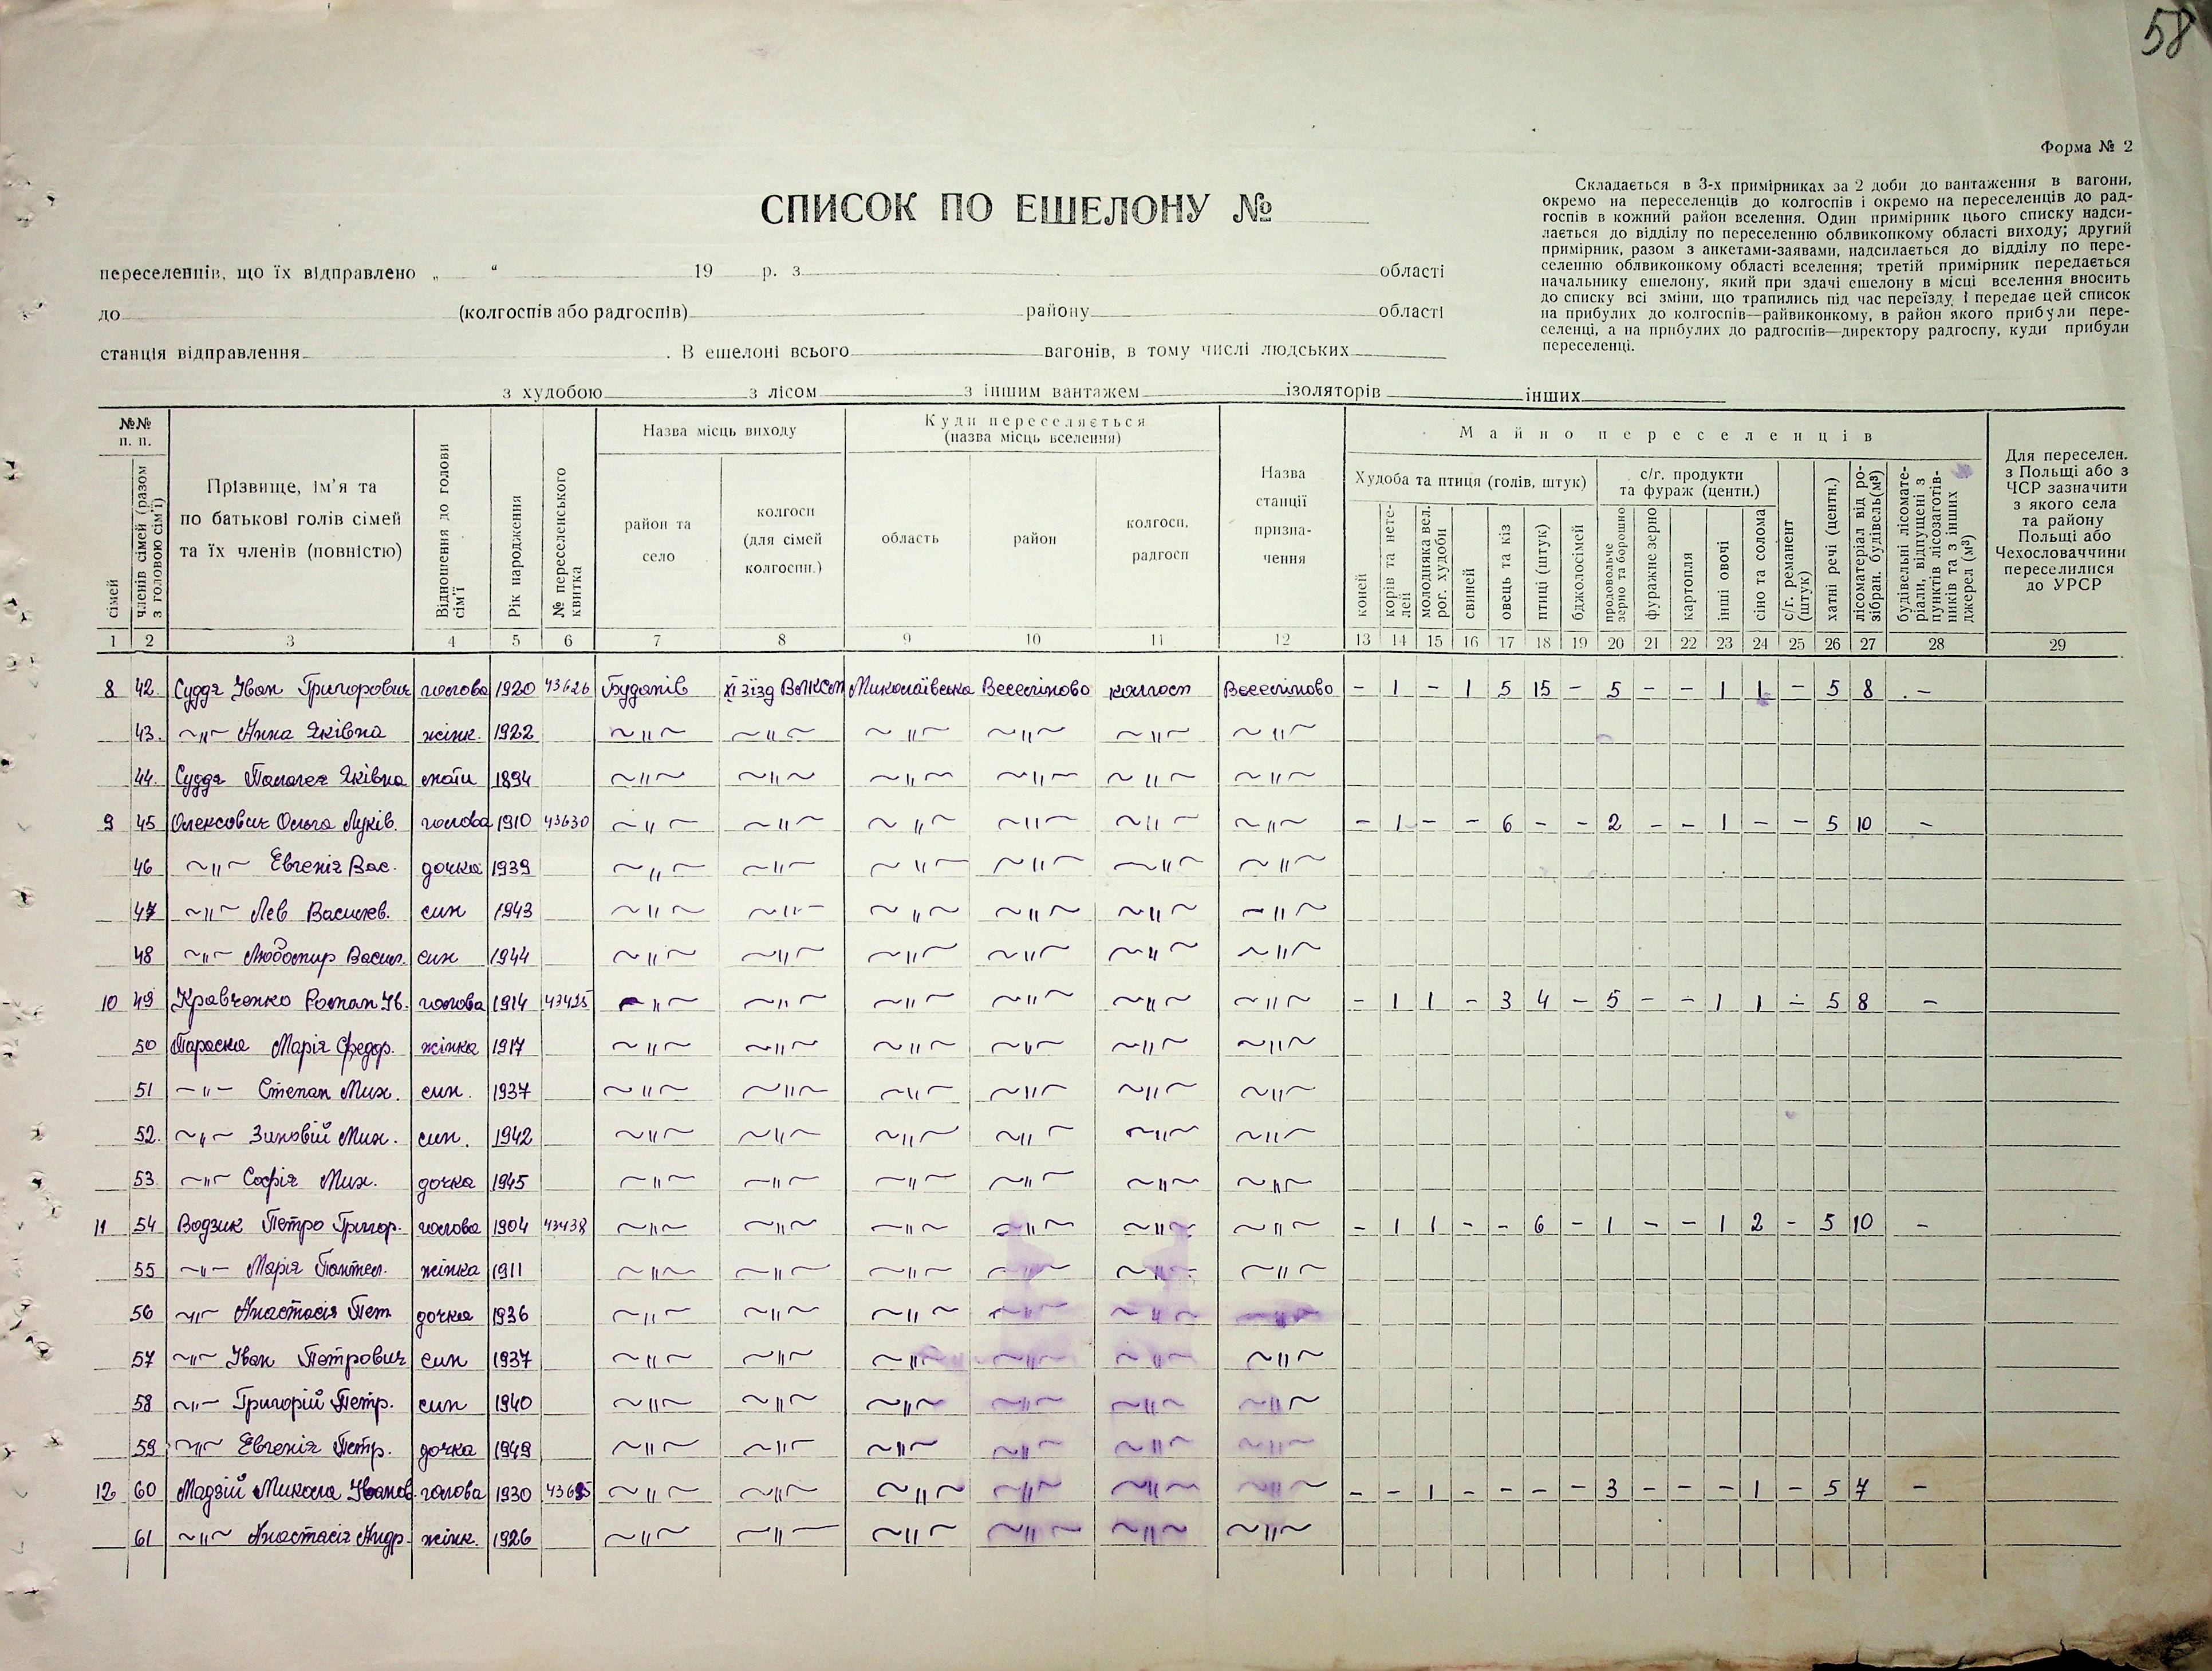 58
Форма № 2
СПИСОК ПО ЕШЕЛОНУ №
Складається в 3-х примірниках за 2 доби до вантаження в вагони,
окремо на переселенців до колгоспів і окремо на переселенців до рад-
госпів в кожний район вселення. Один примірник цього списку надси-
лається до відділу по переселенню облвиконкому області виходу; другий
примірник, разом з анкетами-заявами, надсилається до відділу по пере-
селенню облвиконкому області вселення; третій примірник передається
начальнику ешелону, який при здачі ешелону в місці вселення вносить
до списку всі зміни, що трапились під час переїзду і передає цей список
на прибулих до колгоспів—райвиконкому, в район якого прибули пере-
селенці, а на прибулих до радгоспів—директору радгоспу, куди прибули
переселенці.
переселенців, що їх відправлено „ “ 19 р. з області
до (колгоспів або радгоспів) району області
станція відправлення . В ешелоні всього вагонів, в тому числі людських
з худобою з лісом з іншим вантажем ізоляторів інших
№№ п. п.
сімей
членів сімей (разом з головою сім'ї)
Прізвище, ім'я та
по батькові голів сімей
та їх членів (повністю)
Відношення до голови сім'ї
Рік народження
№ переселенського квитка
Назва місць виходу
район та село
колгосп (для сімей колгоспн.)
Куди переселяється
(назва місць вселення)
область
район
колгосп, радгосп
Назва станції призна-чення
Майно переселенців
Худоба та птиця (голів, штук)
коней
корів та нете-лей
молодняка вел. рог. худоби
свиней
овець та кіз
птиці (штук)
бджолосімей
с/г. продукти та фураж (центн.)
продовольче зерно та борошно
фуражне зерно
картопля
інші овочі
сіно та солома
с/г. реманент (штук)
хатні речі (центн.)
лісоматеріал від ро-зібран. будівель(м³)
будівельні лісомате-ріали, відпущені з пунктів лісозаготів-ників та з інших джерел (м³)
Для переселен.
з Польщі або з
ЧСР зазначити
з якого села
та району
Польщі або
Чехословаччини
переселилися
до УРСР
1 2 3 4 5 6 7 8 9 10 11 12 13 14 15 16 17 18 19 20 21 22 23 24 25 26 27 28 29
8 42. Суддя Іван Григорович голова 1920 43626 Буданів XI зїзд ВЛКСМ Миколаївська Веселіново колгосп Веселіново - 1 - 1 5 15 - 5 - - 1 1 - 5 8 -
43. ~"~ Анна Яківна жінк. 1922 ~"~ ~"~ ~"~ ~"~ ~"~ ~"~
44. Суддя Палагея Яківна мати 1894 ~"~ ~"~ ~"~ ~"~ ~"~ ~"~
9 45 Олексович Ольга Луків. голова 1910 43630 ~"~ ~"~ ~"~ ~"~ ~"~ ~"~ - 1 - - 6 - - 2 - - 1 - - 5 10 -
46 ~"~ Евгенія Вас. дочка 1939 ~"~ ~"~ ~"~ ~"~ ~"~ ~"~
47 ~"~ Лев Василев. син 1943 ~"~ ~"~ ~"~ ~"~ ~"~ ~"~
48 ~"~ Любомир Васил. син 1944 ~"~ ~"~ ~"~ ~"~ ~"~ ~"~
10 49 Кравченко Роман Ів. голова 1914 43425 ~"~ ~"~ ~"~ ~"~ ~"~ ~"~ - 1 1 - 3 4 - 5 - - 1 1 - 5 8 -
50 Параска Марія Федор. жінка 1917 ~"~ ~"~ ~"~ ~"~ ~"~ ~"~
51 -"- Степан Мих. син. 1937 ~"~ ~"~ ~"~ ~"~ ~"~ ~"~
52. ~"~ Зиновій Мих. син. 1942 ~"~ ~"~ ~"~ ~"~ ~"~ ~"~
53 ~"~ Софія Мих. дочка 1945 ~"~ ~"~ ~"~ ~"~ ~"~ ~"~
11 54 Водзик Петро Григор. голова 1904 43438 ~"~ ~"~ ~"~ ~"~ ~"~ ~"~ - 1 1 - - 6 - 1 - - 1 2 - 5 10 -
55 ~"~ Марія Пантел. жінка 1911 ~"~ ~"~ ~"~ ~"~ ~"~ ~"~
56 ~"~ Анастасія Пет дочка 1936 ~"~ ~"~ ~"~ ~"~ ~"~ ~"~
57 ~"~ Іван Петрович син 1937 ~"~ ~"~ ~"~ ~"~ ~"~ ~"~
58 ~"~ Григорій Петр. син 1940 ~"~ ~"~ ~"~ ~"~ ~"~ ~"~
59 ~"~ Евгенія Петр. дочка 1949 ~"~ ~"~ ~"~ ~"~ ~"~ ~"~
12 60 Мадзій Микола Іванов. голова 1930 ~"~ ~"~ ~"~ ~"~ ~"~ ~"~ - - 1 - - - - 3 - - - 1 - 5 7 -
61 ~"~ Анастасія Андр. жінк. 1926 ~"~ ~"~ ~"~ ~"~ ~"~ ~"~